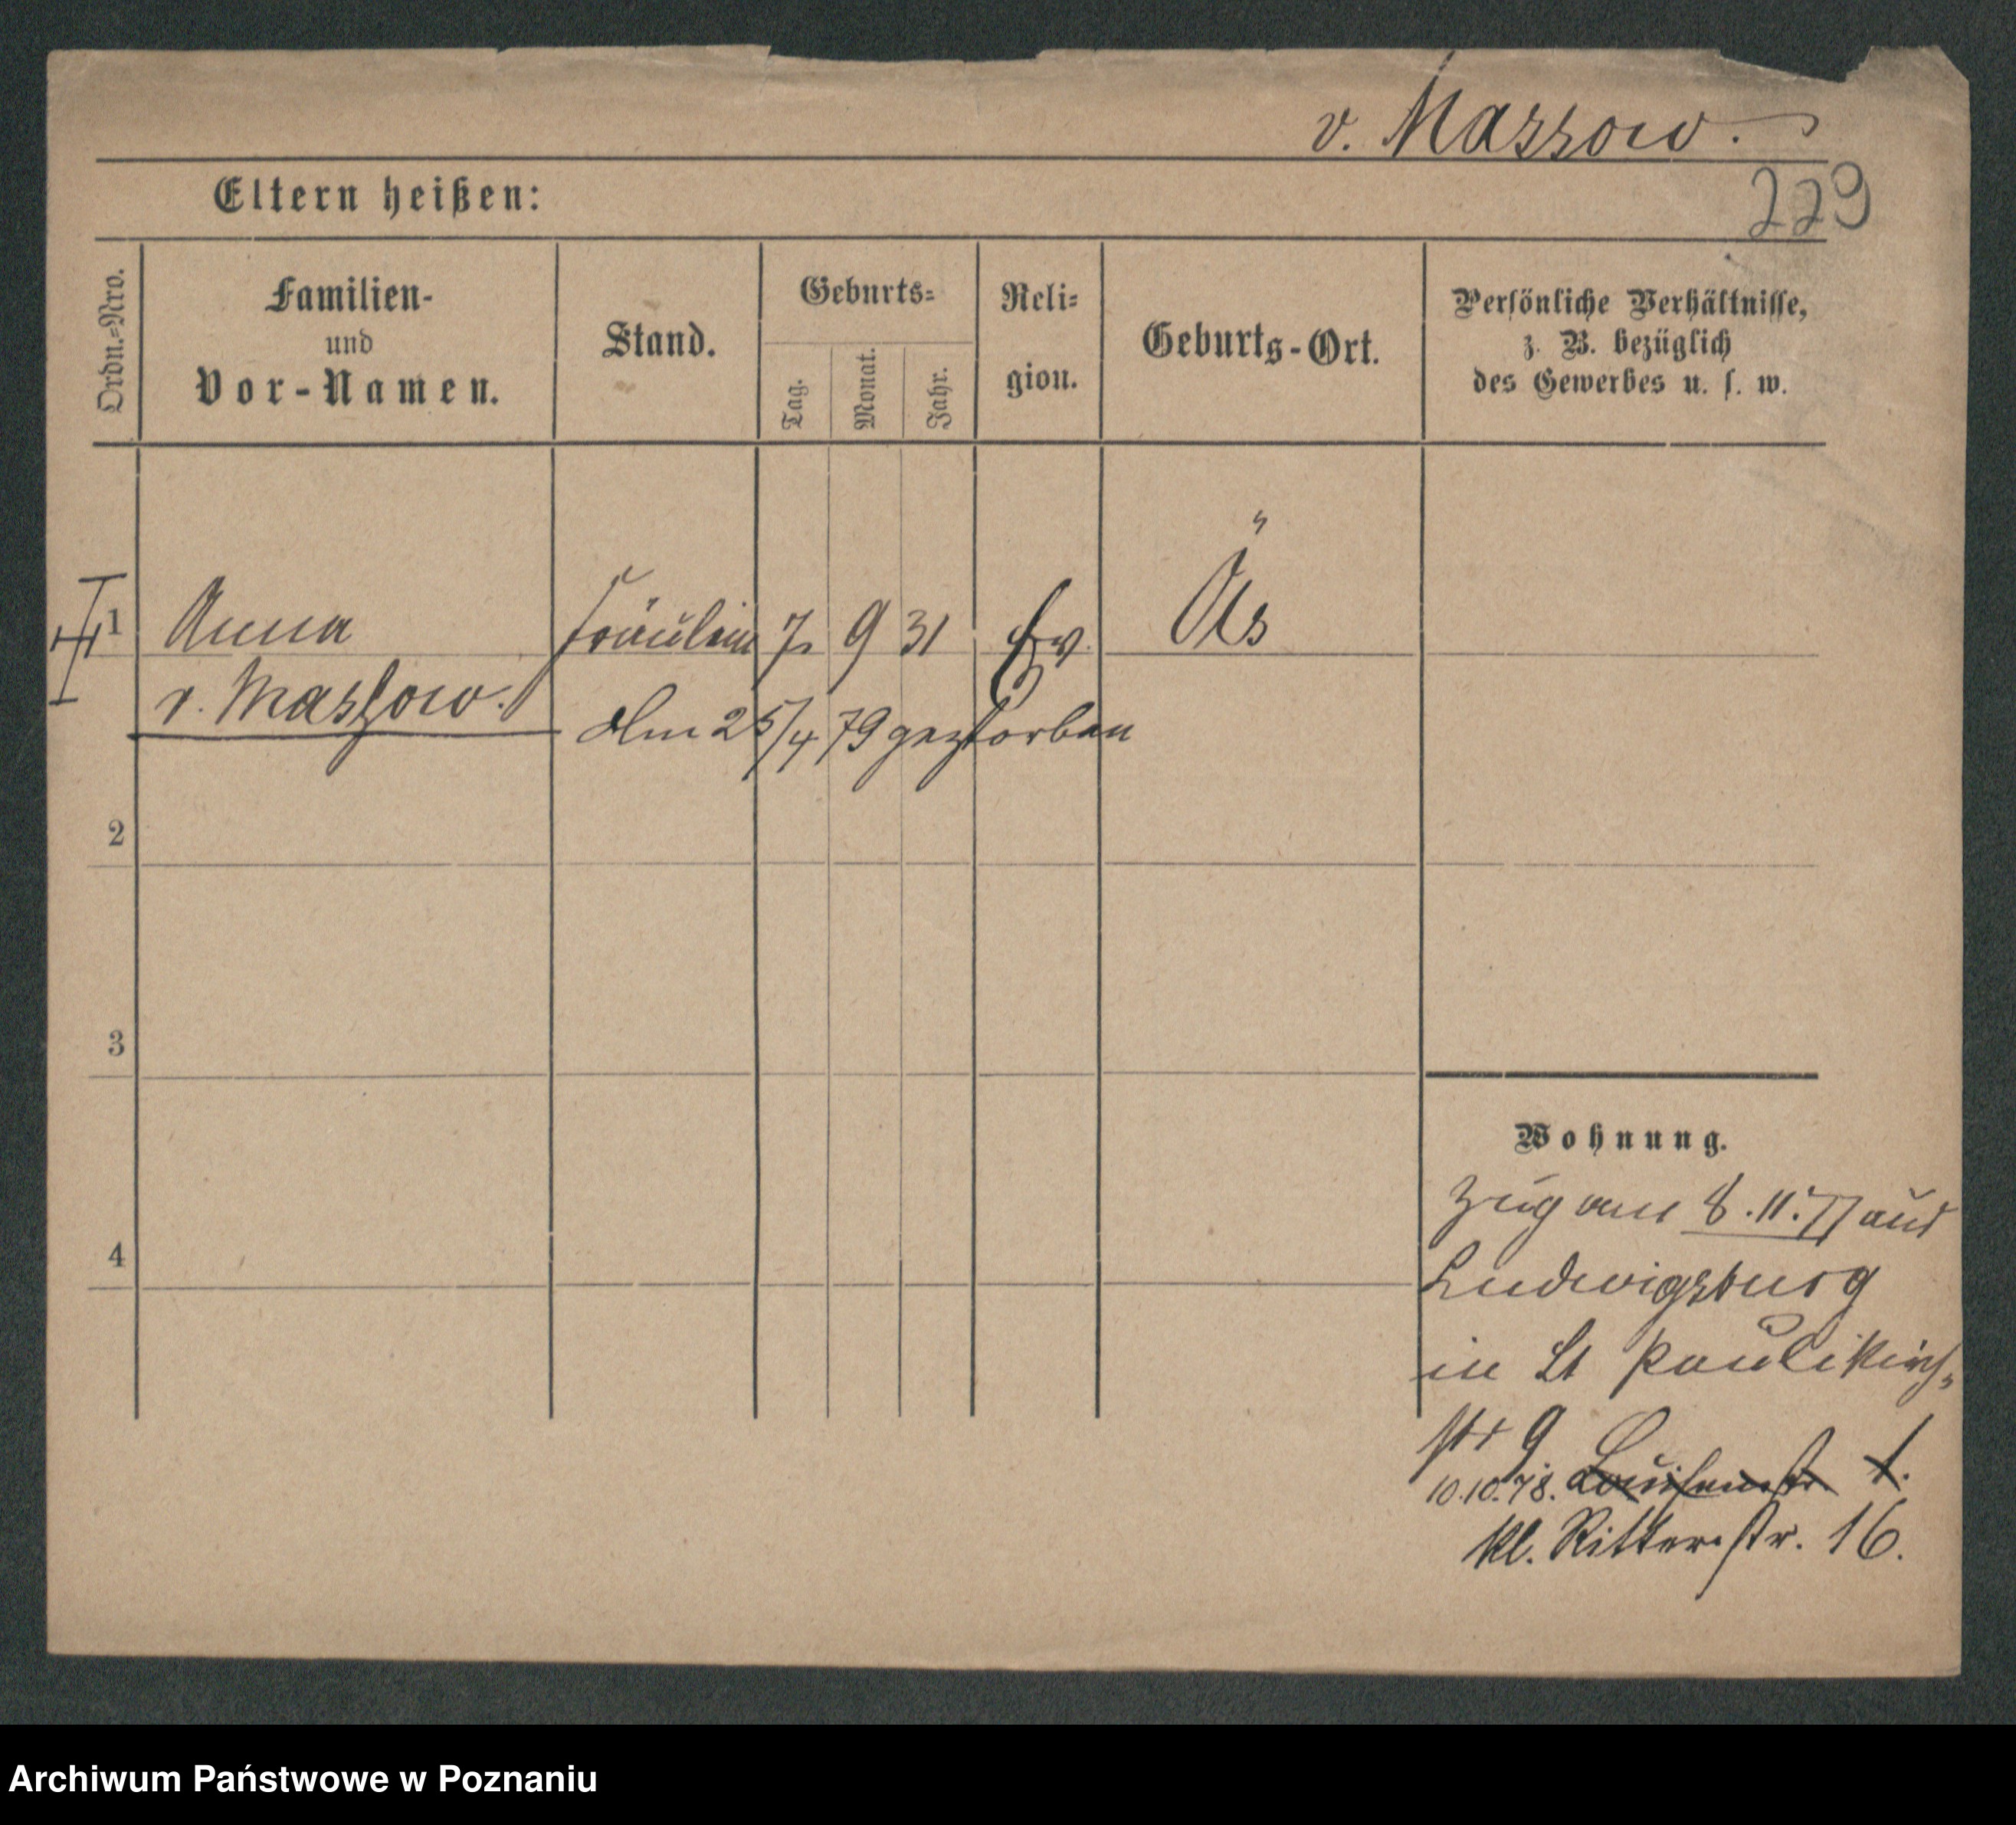 v. Massow.
229
Eltern heißen:
Ordn.-Nro.
Familien-
und
Vor-Namen.
Stand.
Geburts-
Tag.
Monat.
Jahr.
Reli-
gion.
Geburts-Ort.
Persönliche Verhältnisse,
z. B. bezüglich
des Gewerbes u. s. w.
1 Anna Fräulein 7. 9 31 Ev. Öls
v. Massow. Am 25/4 79 gestorben
2
3
4
Wohnung.
Zug am 8.11.77 aus
Ludwigsburg
in St Paulikirch-
str 9
10.10.78. Louisenstr. 1.
kl. Ritterstr. 16.
Archiwum Państwowe w Poznaniu